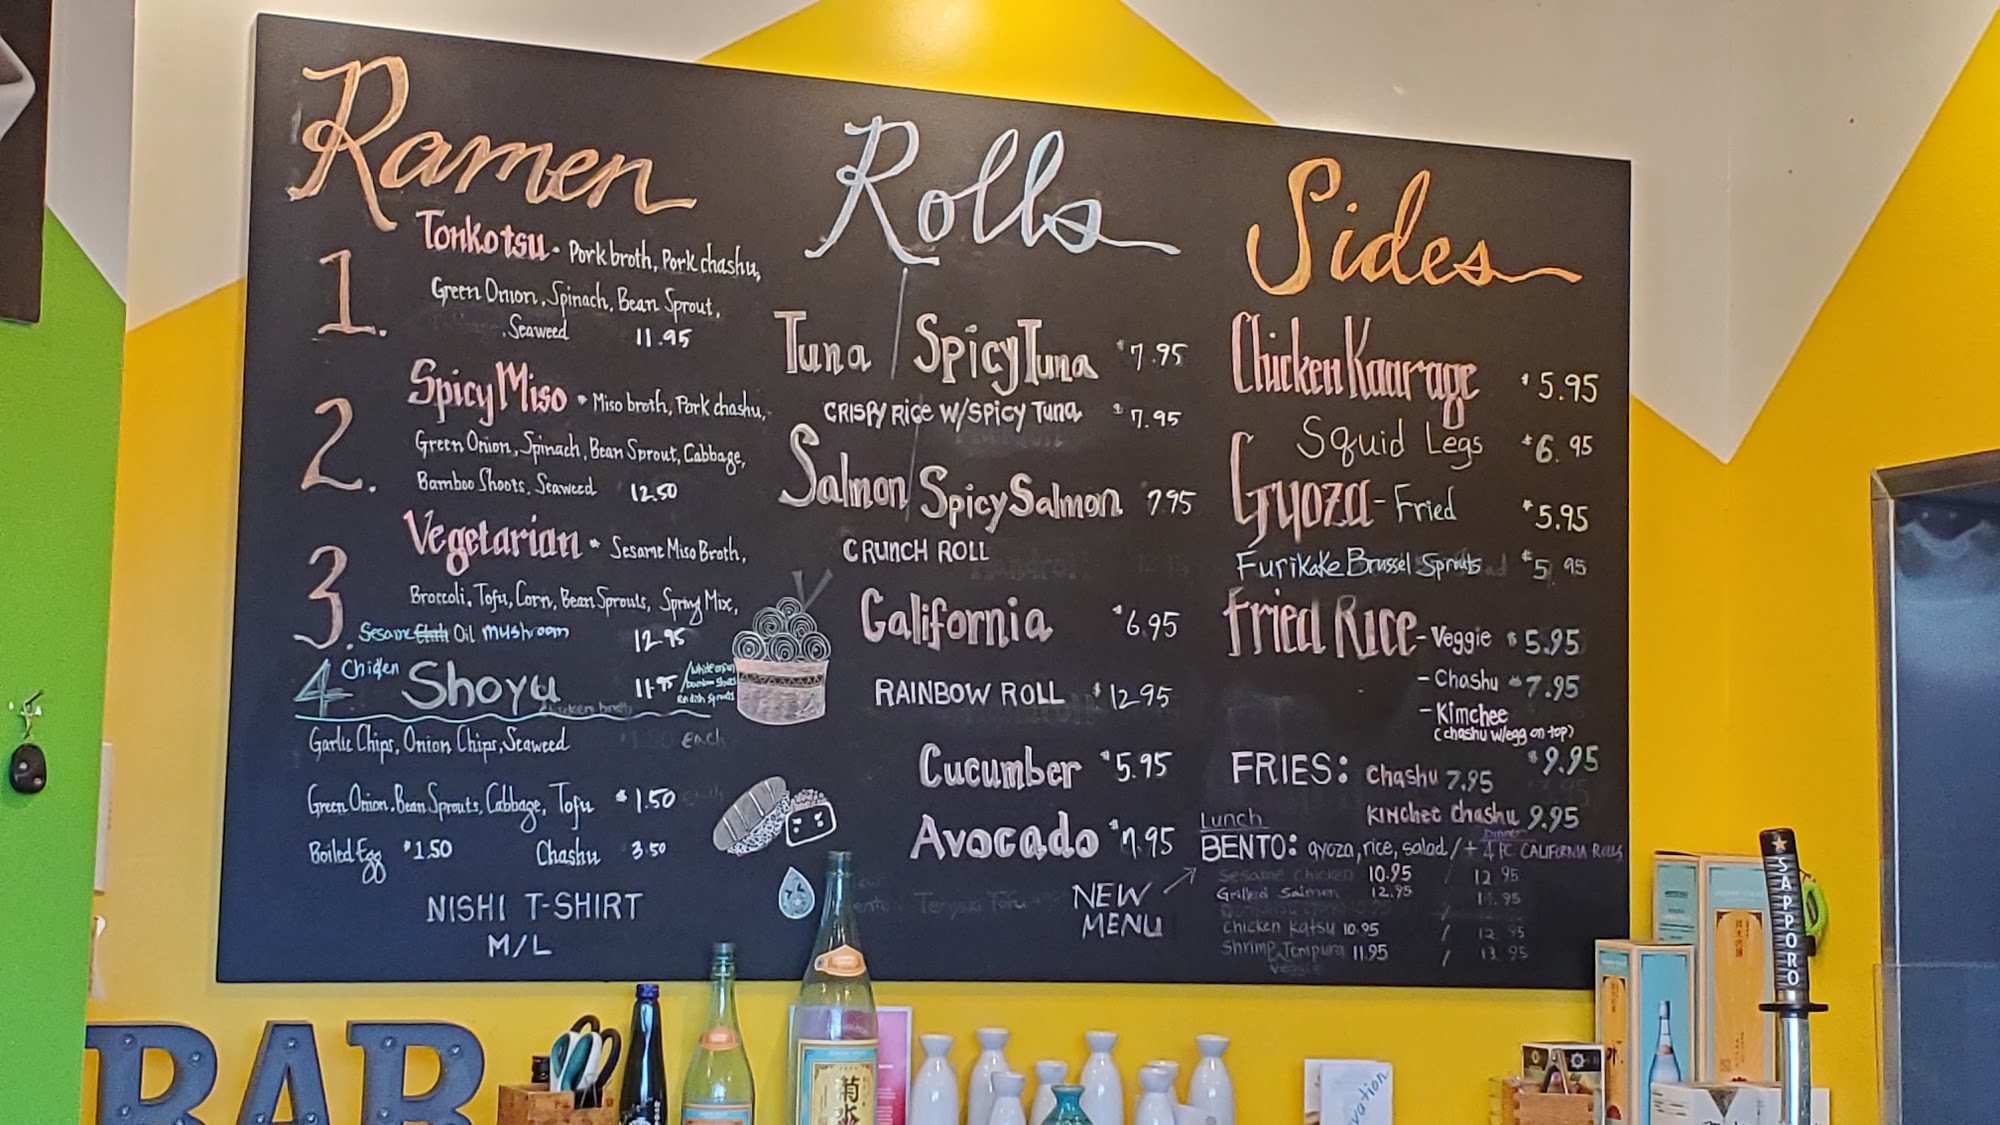 Ramen
1. Tonkotsu - Pork broth, Pork chashu,
Green Onion, Spinach, Bean Sprout,
Seaweed 11.95
2. Spicy Miso - Miso broth, Pork chashu,
Green Onion, Spinach, Bean Sprout, Cabbage,
Bamboo Shoots, Seaweed 12.50
3. Vegetarian - Sesame Miso Broth,
Broccoli, Tofu, Corn, Bean Sprouts, Spring Mix,
Sesame Oil mushroom 12.95
4 Chicken Shoyu 11.95
chicken broth
Garlic Chips, Onion Chips, Seaweed each
Green Onion, Bean Sprouts, Cabbage, Tofu $1.50
Boiled Egg $1.50 Chashu 3.50
NISHI T-SHIRT
M/L
Rolls
Tuna / Spicy Tuna $7.95
CRISPY RICE W/SPICY TUNA $7.95
Salmon / Spicy Salmon 7.95
CRUNCH ROLL
California $6.95
RAINBOW ROLL $12.95
Cucumber $5.95
Avocado $7.95
Teriyaki Tofu
NEW
MENU
Sides
Chicken Kaarage $5.95
Squid Legs $6.95
Gyoza - Fried $5.95
Furikake Brussel Sprouts $5.95
Fried Rice - Veggie $5.95
- Chashu $7.95
- Kimchee
(chashu w/egg on top)
$9.95
FRIES: Chashu 7.95
Kimchee chashu 9.95
Lunch Dinner
BENTO: gyoza, rice, salad / + 4 PC. CALIFORNIA ROLLS
Sesame Chicken 10.95 / 12.95
Grilled Salmon 12.95
Chicken Katsu 10.95 / 12.95
Shrimp Tempura 11.95 / 13.95
Veggie
BAR
菊水
SAPPORO